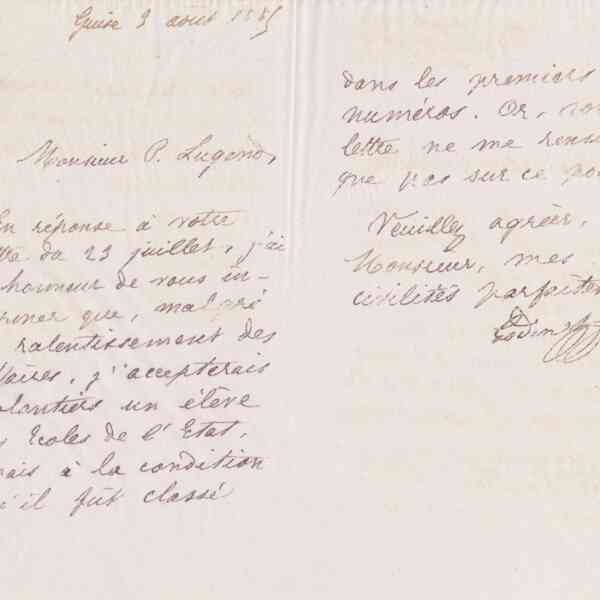 Guise 3 août 1885
Monsieur P. Lugano,
En réponse à votre
ttre du 23 juillet, j'ai
honneur de vous in-
ormer que, malgré
ralentissement des
ffaires, j'accepterais
olontiers un élève
s Ecoles de l'Etat,
mais à la condition
qu'il fût classé
dans les premiers
numéros. Or, vo
lettre ne me rensei
gne pas sur ce poi
Veuillez agréer,
Monsieur, mes
civilités parfaites
Godin